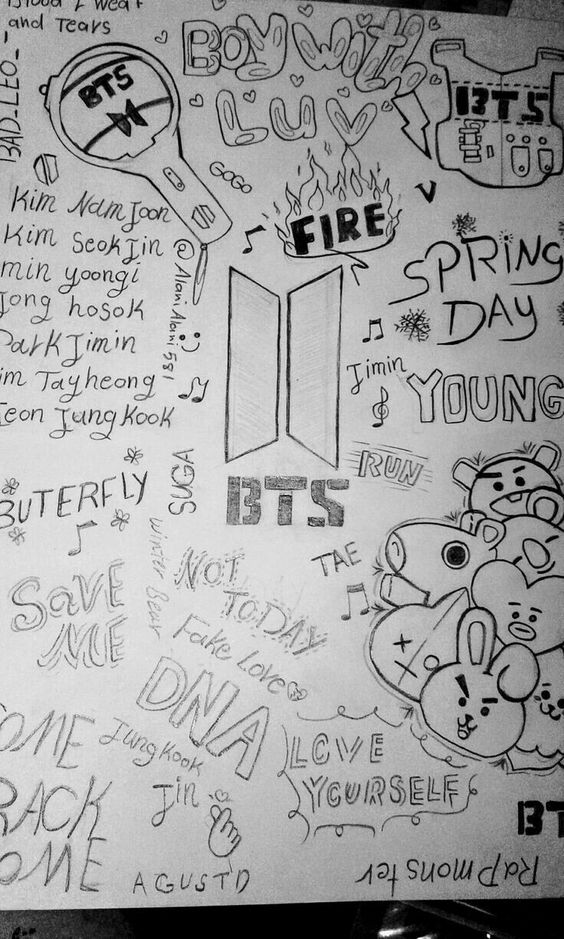 Blood & Wear
and Tears
BAD_LEO_
BTS
BOY With
LUV
BTS
GOGO
FIRE
V
Kim NamJoon
Kim SeokJin
min yoongi
Jong hosok
Park Jimin
im Tayheong
Jeon JungKook
@AlaniAlani581
SPRiNG
DAY
Jimin
YOUNG
RUN
BTS
SUGA
BUTERFLY
Winter Bear
TAE
NOT
ToDAY
SaVE
ME
Fake Love
DNA
OME
JungKook
LOVE
YOURSELF
Jin
RACK
OME
AGUSTD
BT
RaPmonster